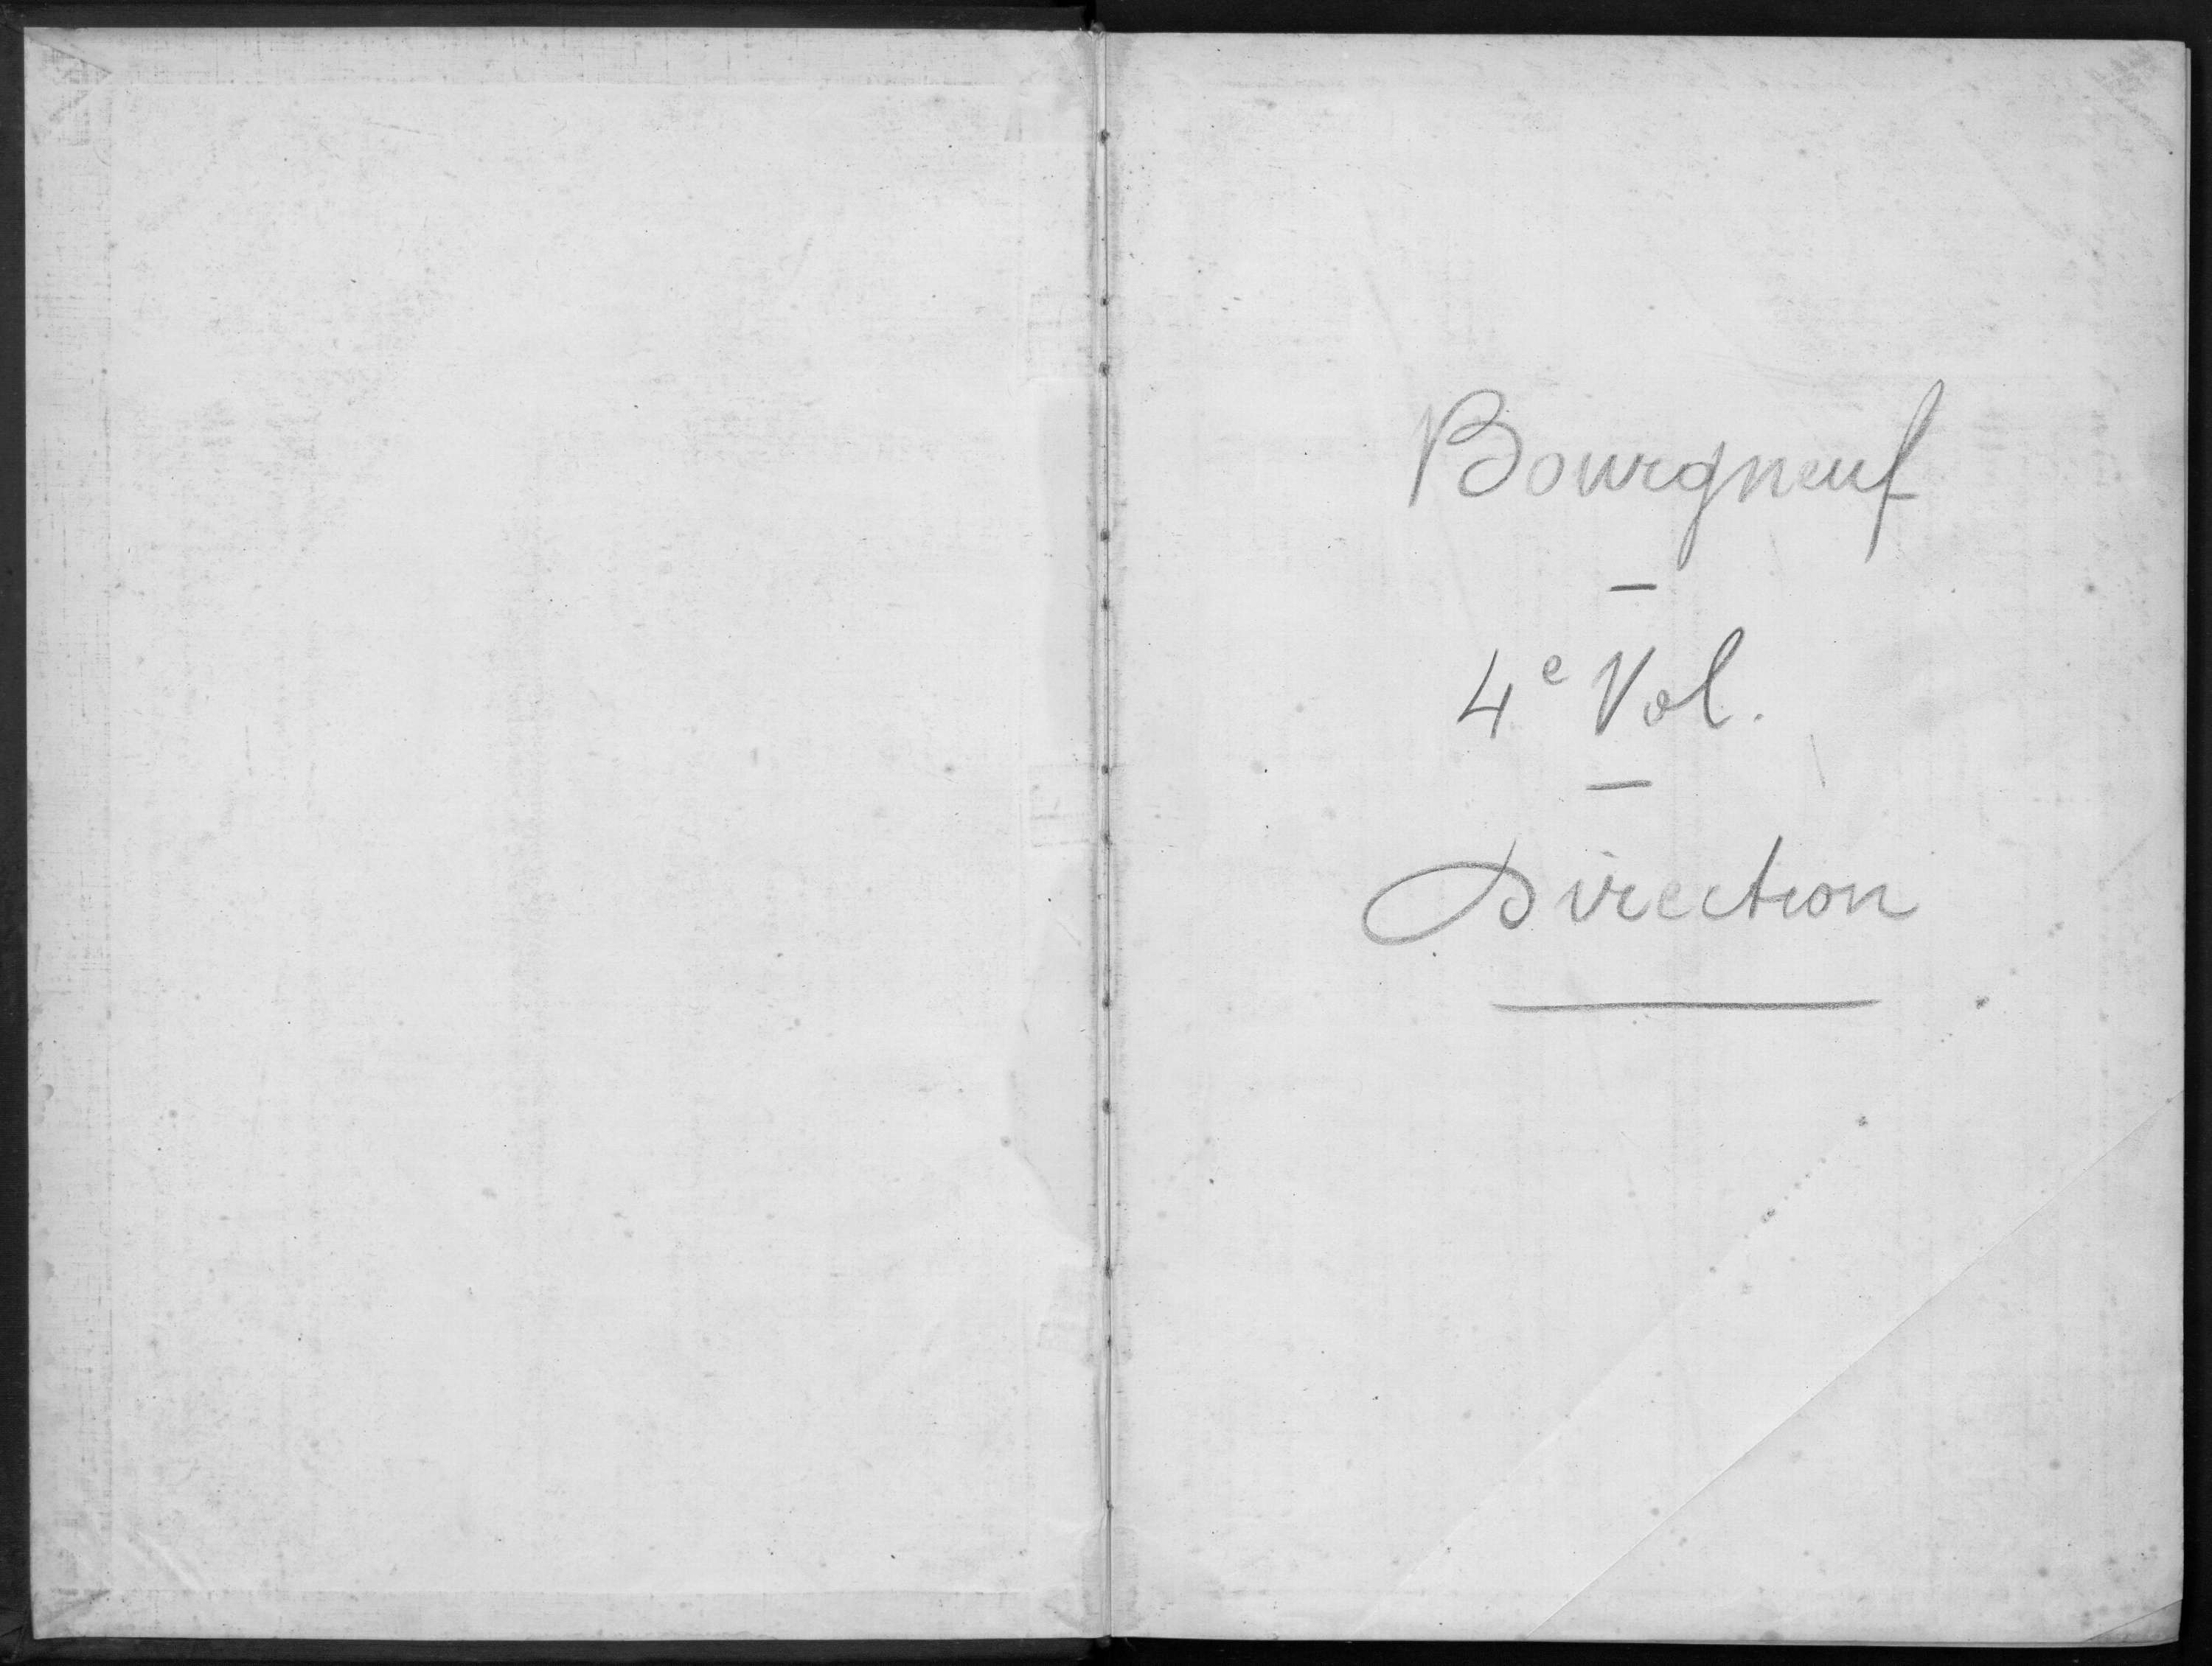 Bourgneuf
—
4e Vol.
—
Direction